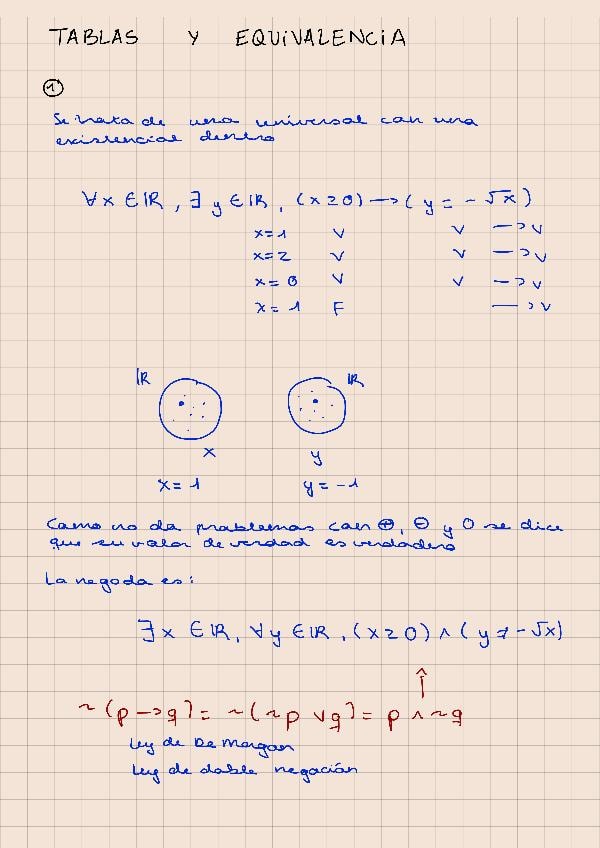 TABLAS Y EQUIVALENCIA
1
Se trata de una universal con una
existencial dentro
∀x ∈ IR, ∃ y ∈ IR, (x ≥ 0) —> (y = - √x)
x = 1 V V —> V
x = 2 V V —> V
x = 0 V V —> V
x = 1 F —> V
IR IR
x y
x = 1 y = -1
Como no da problemas con ⊕, ⊖ y 0 se dice
que su valor de verdad es verdadero
La negada es:
∃x ∈ IR, ∀y ∈ IR, (x ≥ 0) ∧ (y ≠ - √x)
~(p —> q) = ~(~p ∨ q) = p ∧ ~q
Ley de De Morgan
Ley de doble negación